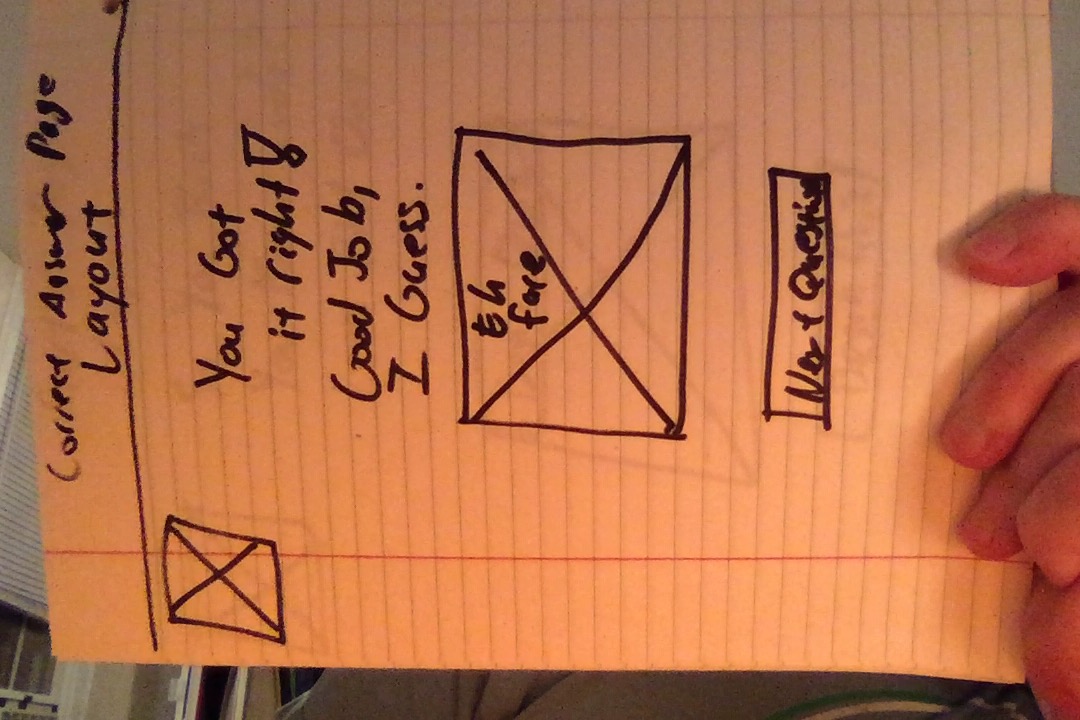 Correct Answer Page
Layout
You Got
it right!
Good Job,
I Guess.
Eh
face
Next Question